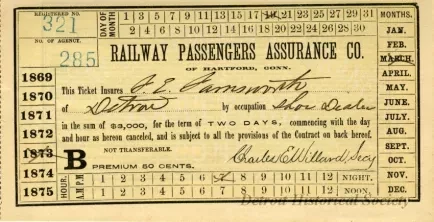 REGISTERED NO.
321
NO. OF AGENCY.
285
DAY OF MONTH
1 3 5 7 9 11 13 15 17 19 21 23 25 27 29 31
2 4 6 8 10 12 14 16 18 20 22 24 26 28 30
MONTHS.
JAN.
FEB.
MARCH.
APRIL.
MAY.
JUNE.
JULY.
AUG.
SEPT.
OCT.
NOV.
DEC.
RAILWAY PASSENGERS ASSURANCE CO.
OF HARTFORD, CONN.
1869
1870
1871
1872
1873
1874
1875
This Ticket Insures Farnsworth
of Detroit by occupation Shoe Dealer
in the sum of $3,000, for the term of TWO DAYS, commencing with the day
and hour as hereon canceled, and is subject to all the provisions of the Contract on back hereof.
NOT TRANSFERABLE.
B
PREMIUM 50 CENTS.
Charles E Willard, Secy
HOUR.
A.M. 1 2 3 4 5 6 7 8 9 10 11 12 NIGHT.
P.M. 1 2 3 4 5 6 7 8 9 10 11 12 NOON.
Detroit Historical Society